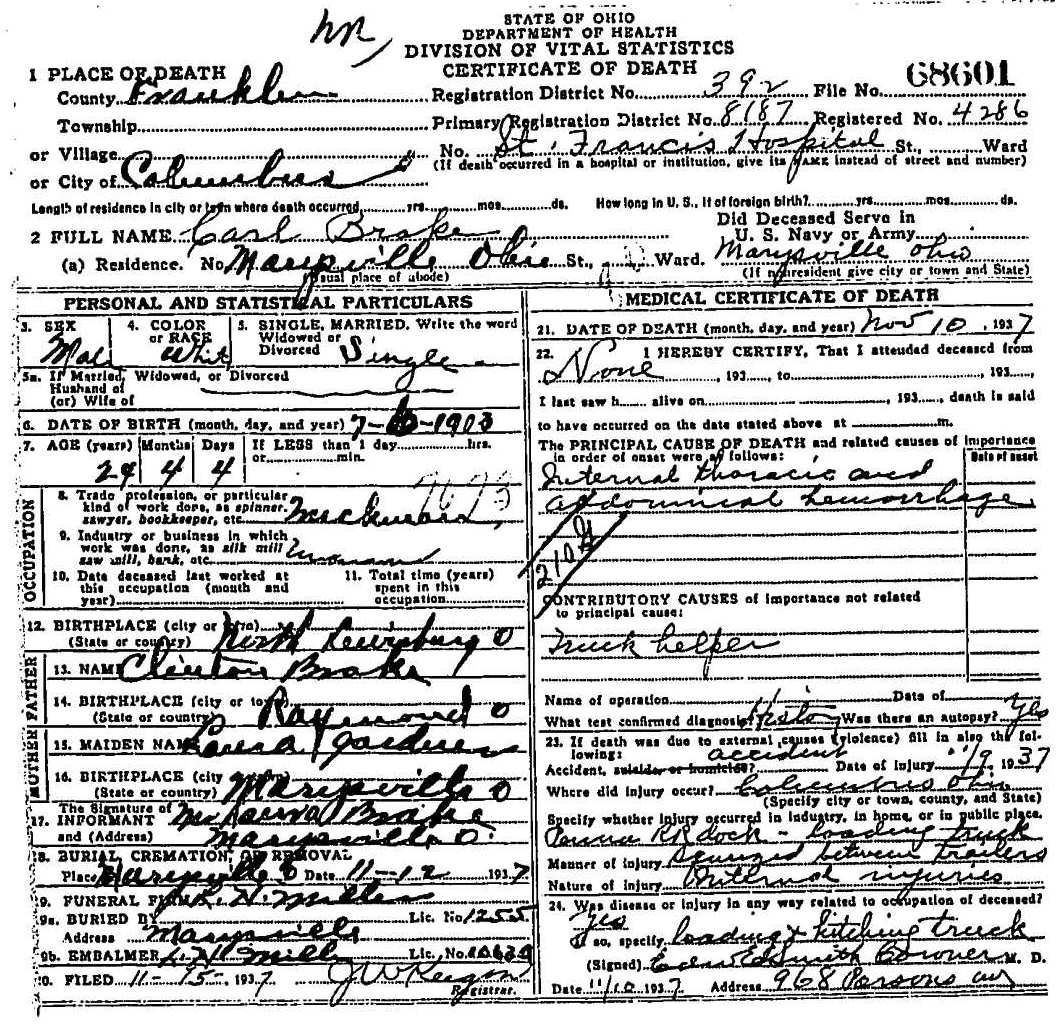 STATE OF OHIO
DEPARTMENT OF HEALTH
DIVISION OF VITAL STATISTICS
CERTIFICATE OF DEATH
1 PLACE OF DEATH
County Franklin Registration District No. 392 File No. 68601
Township Primary Registration District No. 8187 Registered No. 4286
or Village No. St. Francis Hospital St., Ward
(If death occurred in a hospital or institution, give its NAME instead of street and number)
or City of Columbus
Length of residence in city or town where death occurred yrs. mos. ds. How long in U. S., if of foreign birth? yrs. mos. ds.
2 FULL NAME Carl Brake Did Deceased Serve in U. S. Navy or Army
(a) Residence. No. Marysville Ohio St., Ward. Marysville Ohio
(Usual place of abode) (If nonresident give city or town and State)
PERSONAL AND STATISTICAL PARTICULARS
3. SEX 4. COLOR or RACE 5. SINGLE, MARRIED, Write the word Widowed or Divorced
Male Whit Single
5a. If Married, Widowed, or Divorced
Husband of
(or) Wife of
6. DATE OF BIRTH (month, day, and year) 7-6-1913
7. AGE (years) Months Days If LESS than 1 day hrs.
or min.
24 4 4
OCCUPATION
8. Trade profession, or particular
kind of work done, as spinner,
sawyer, bookkeeper, etc.
9. Industry or business in which
work was done, as silk mill
saw mill, bank, etc.
10. Date deceased last worked at
this occupation (month and
year)
11. Total time (years)
spent in this
occupation
12. BIRTHPLACE (city or town) North Lewisburg O
(State or country)
FATHER
13. NAME Clinton Brake
14. BIRTHPLACE (city or town) Raymond O
(State or country)
MOTHER
15. MAIDEN NAME Gardner
16. BIRTHPLACE (city Marysville O
(State or country)
The Signature of
17. INFORMANT Brake
and (Address) Marysville O.
18. BURIAL, CREMATION, OR REMOVAL
Place Marysville O Date 11-12 1937
19. FUNERAL FIRM H. Miller
19a. BURIED BY Lic. No. 1255
Address Marysville
19b. EMBALMER Lic. No.
20. FILED 11-15-1937 J W Keegan
Registrar.
MEDICAL CERTIFICATE OF DEATH
21. DATE OF DEATH (month, day, and year) Nov 10, 1937
22. I HEREBY CERTIFY, That I attended deceased from
None, 193, to 193,
I last saw h alive on 193, death is said
to have occurred on the date stated above at m.
The PRINCIPAL CAUSE OF DEATH and related causes of importance
in order of onset were as follows: Date of onset
Internal thoracic and
abdominal hemorrhage
CONTRIBUTORY CAUSES of importance not related
to principal cause:
Truck helper
Name of operation Date of
What test confirmed diagnosis? History Was there an autopsy? Yes
23. If death was due to external causes (violence) fill in also the following:
accident
Accident, suicide, or homicide? Date of injury 11/9 1937
Where did injury occur? Columbus Ohio
(Specify city or town, county, and State)
Specify whether injury occurred in industry, in home, or in public place.
Penna RR dock - loading truck
Manner of injury Squeezed between trailers
Nature of injury Internal injuries
24. Was disease or injury in any way related to occupation of deceased?
Yes
If so, specify loading & hitching truck
(Signed) Smith Coroner M. D.
Date 11/10 1937 Address 968 Parsons av